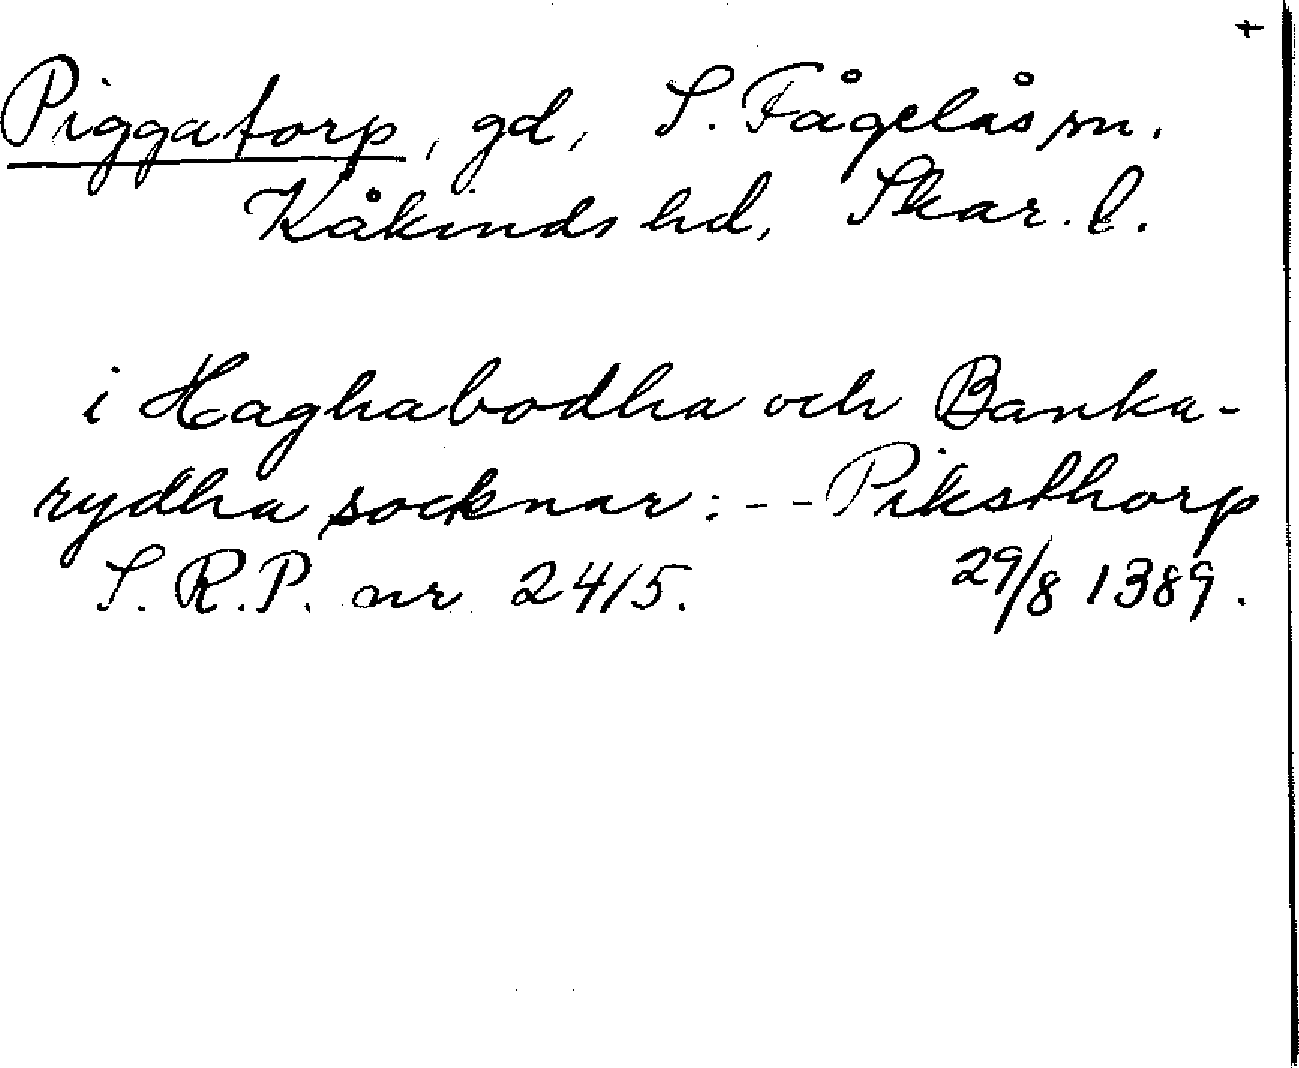 +
Piggatorp, gd, S. Fågelås sn.
Kåkinds hd, Skar. l.
i Haghabodha och Banka-
rydha socknar: -- Piksthorp
S.R.P. nr 2415. 29/8 1389.